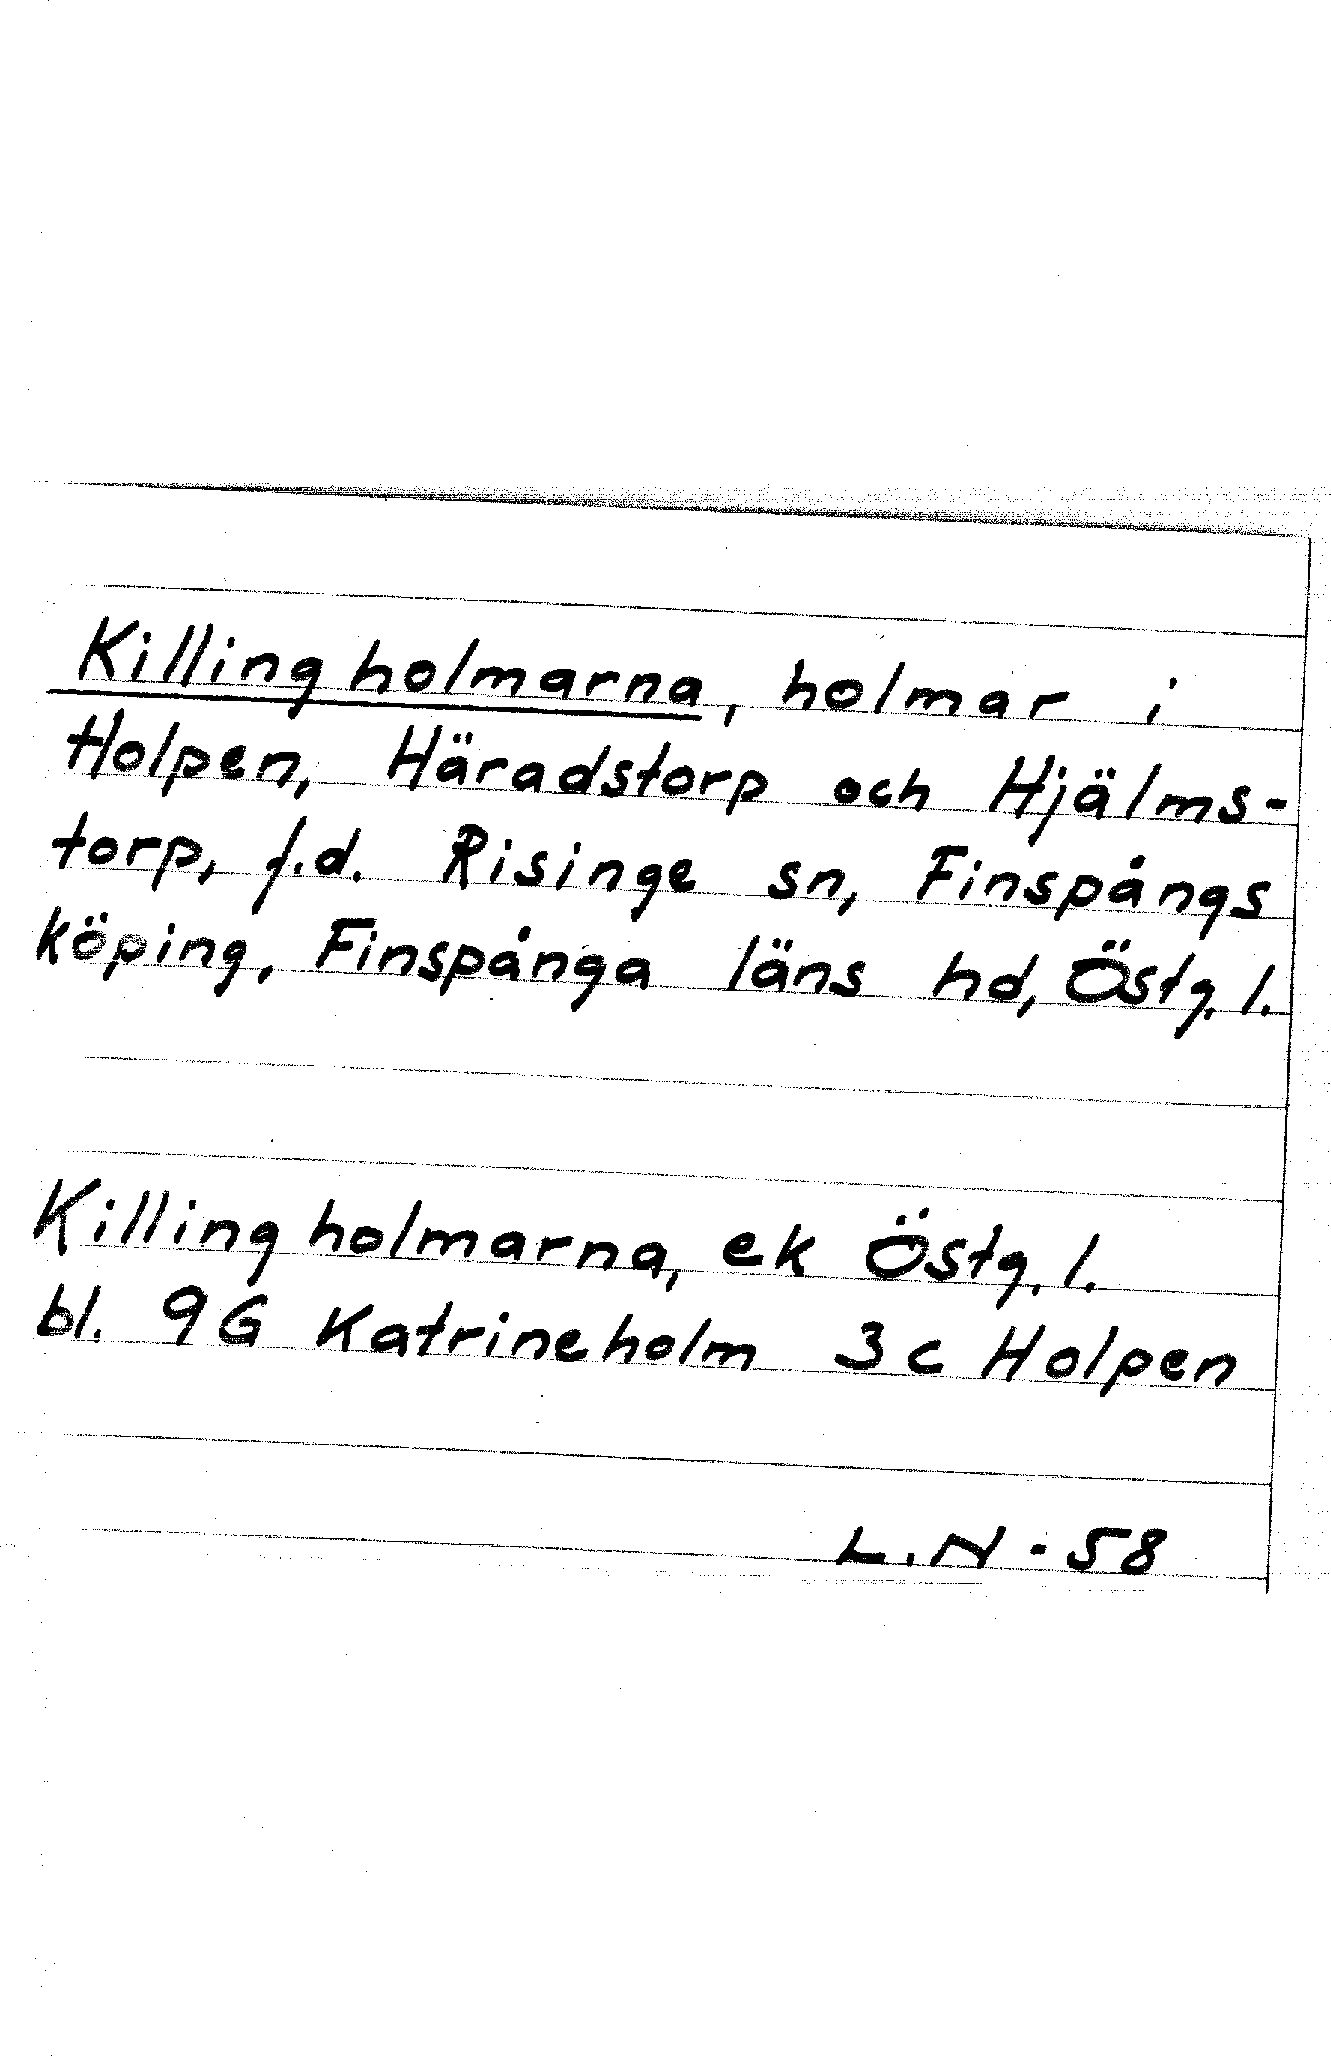 Killingholmarna, holmar i
Holpen, Häradstorp och Hjälms-
torp, f.d. Risinge sn, Finspångs
köping, Finspånga läns hd, Östg. l.
Killingholmarna, ek Östg. l.
bl. 9G Katrineholm 3c Holpen
L.N - 58